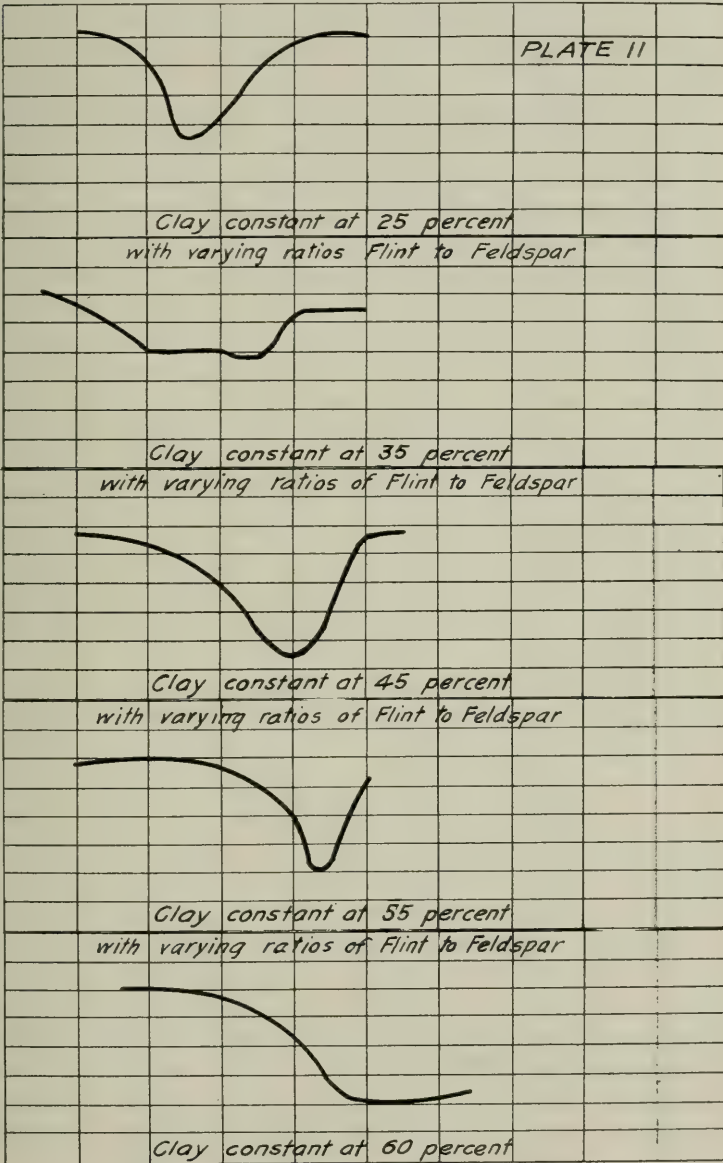 PLATE II
Clay constant at 25 percent
with varying ratios Flint to Feldspar
Clay constant at 35 percent
with varying ratios of Flint to Feldspar
Clay constant at 45 percent
with varying ratios of Flint to Feldspar
Clay constant at 55 percent
with varying ratios of Flint to Feldspar
Clay constant at 60 percent